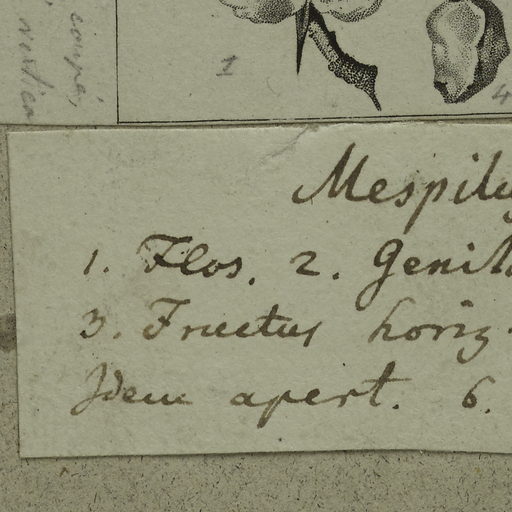 coupé,
1
4
Mespilus
1. Flos. 2. Genit
3. Fructus horiz.
Idem apert. 6.